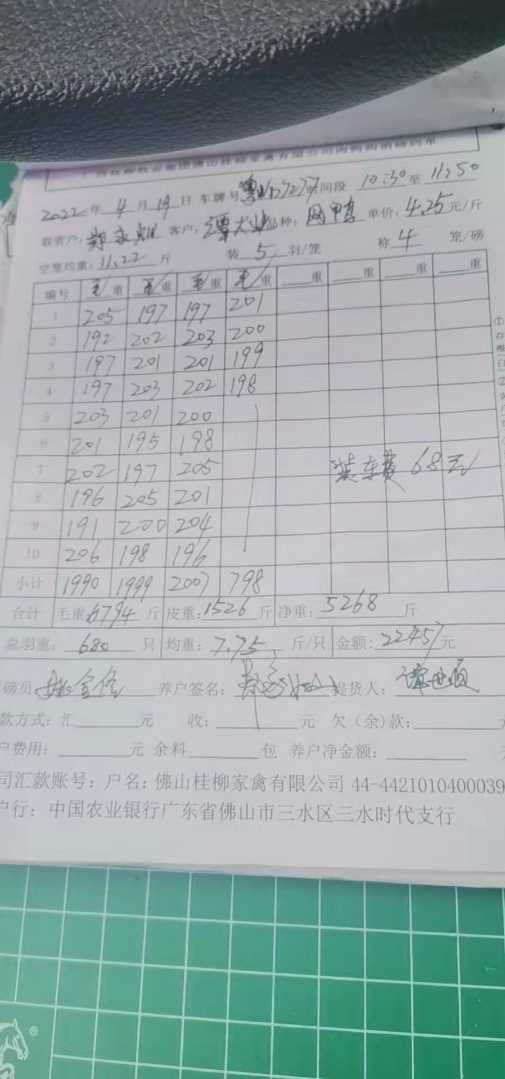 2022年4月19日 车牌号 时间段 10:30至11:50
客户: 品种: 网鸭 单价: 4.25元/斤
空笼均重: 11.22 斤 装 5 羽/笼 称 4 笼/磅
编号 毛重 毛重 毛重 毛重 重 重 重 重
1 205 197 197 201
2 192 202 203 200
3 197 201 201 199
4 197 203 202 198
5 203 201 200
6 201 195 198
7 202 197 205 装车费 68元
8 196 205 201
9 191 200 204
10 206 198 196
小计 1990 1999 2007 798
合计 毛重: 6794 斤 皮重: 1526 斤 净重: 5268 斤
总羽重: 680 只 均重: 7.75 斤/只 金额: 22457元
磅员 养户签名: 提货人:
款方式: 汇 元 收: 元 欠(余)款:
户费用: 元 余料 包 养户净金额:
司汇款账号: 户名: 佛山桂柳家禽有限公司 44-4421010400039
户行: 中国农业银行广东省佛山市三水区三水时代支行